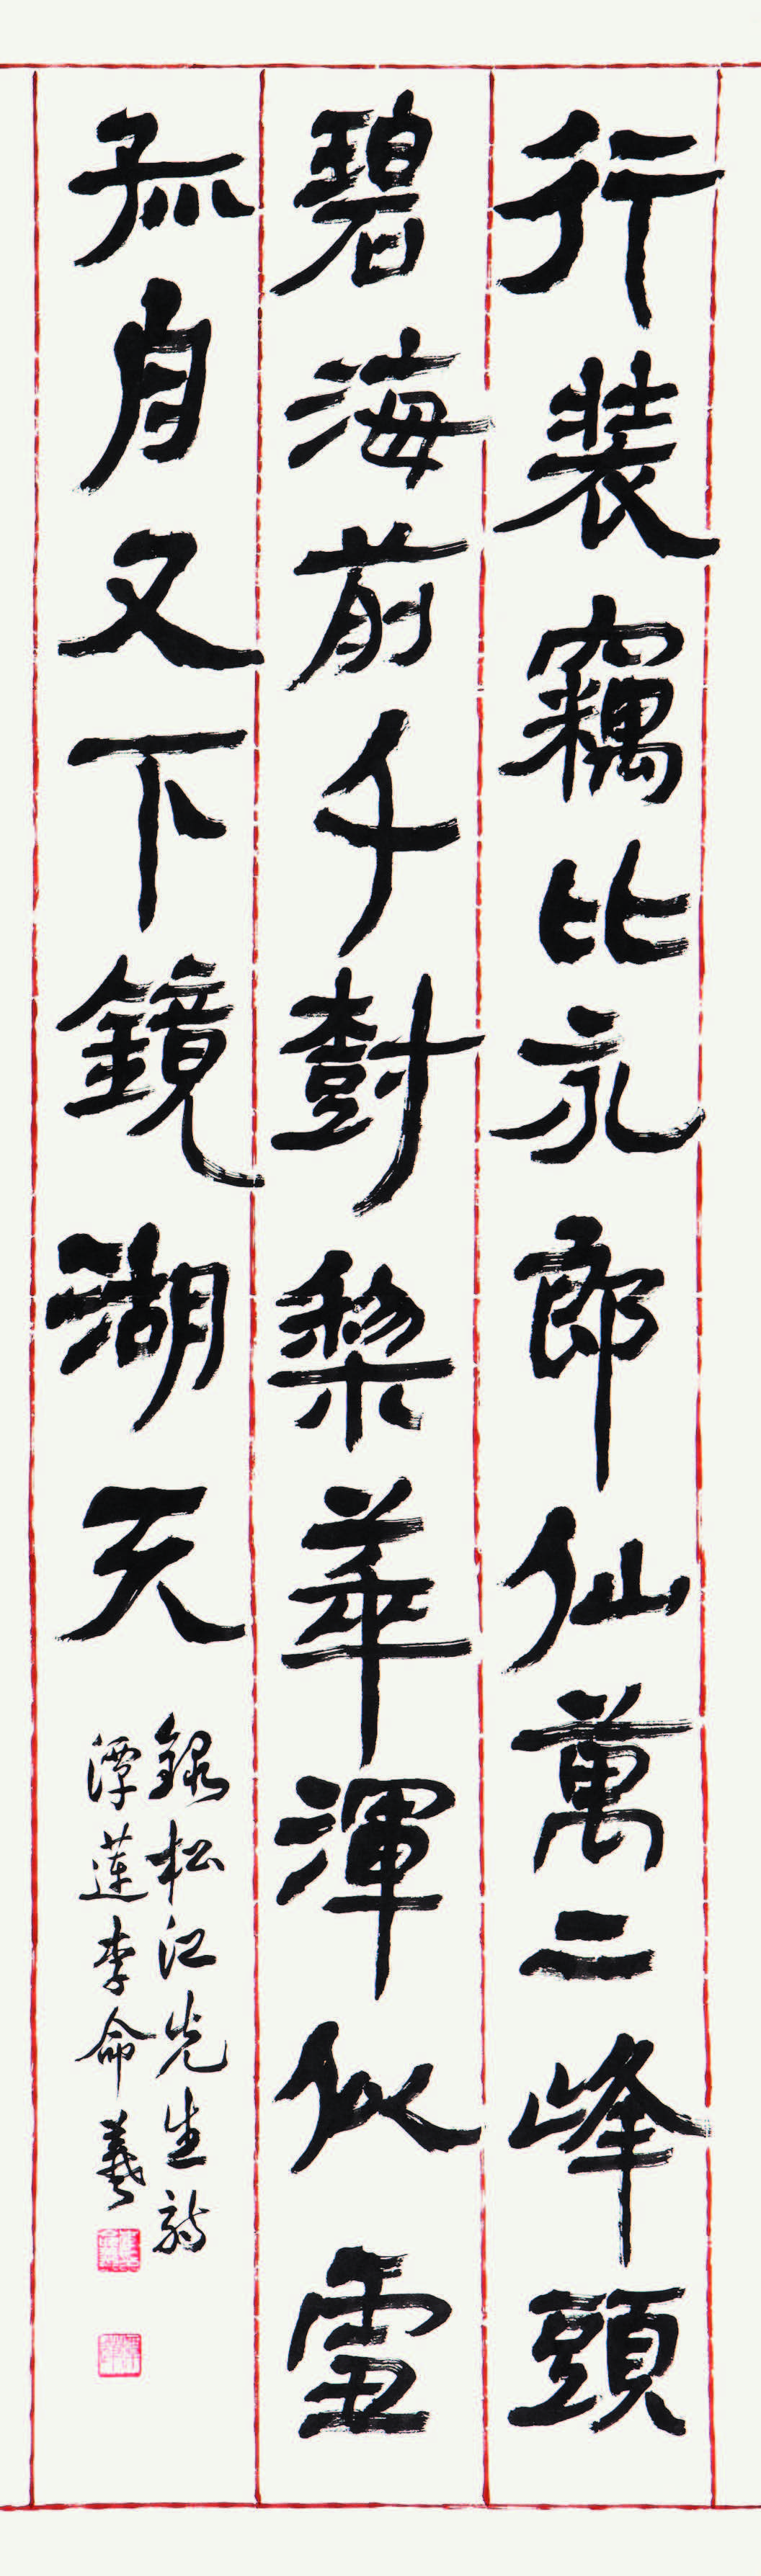 行裝竊比永郎仙萬二峰頭
碧海前千樹梨華渾似雪
孤舟又下鏡湖天
錄松江先生詩
潭蓮李命羲